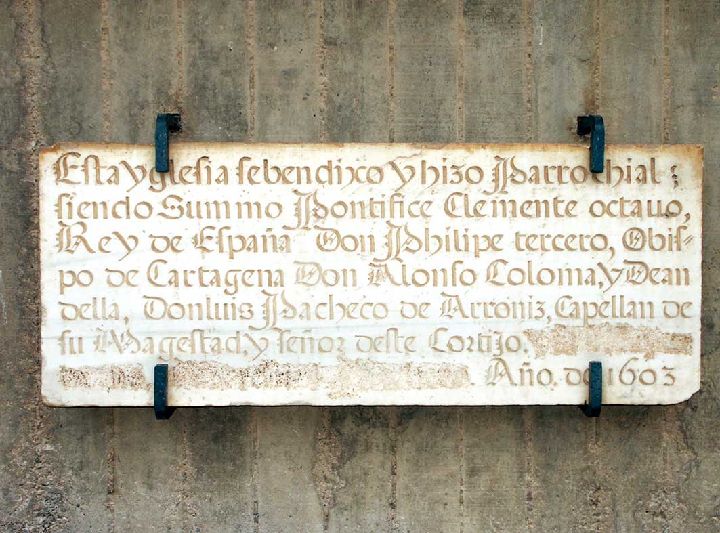 Esta yglesia se bendixo y hizo Parrochial ;
siendo Summo Pontifice Clemente octauo,
Rey de España Don Philipe tercero, Obis-
po de Cartagena Don Alonso Coloma, y Dean
della, Don luis Pacheco de Arroniz, Capellan de
su Magestad, y señor deste Cortijo.
Año. de 1603